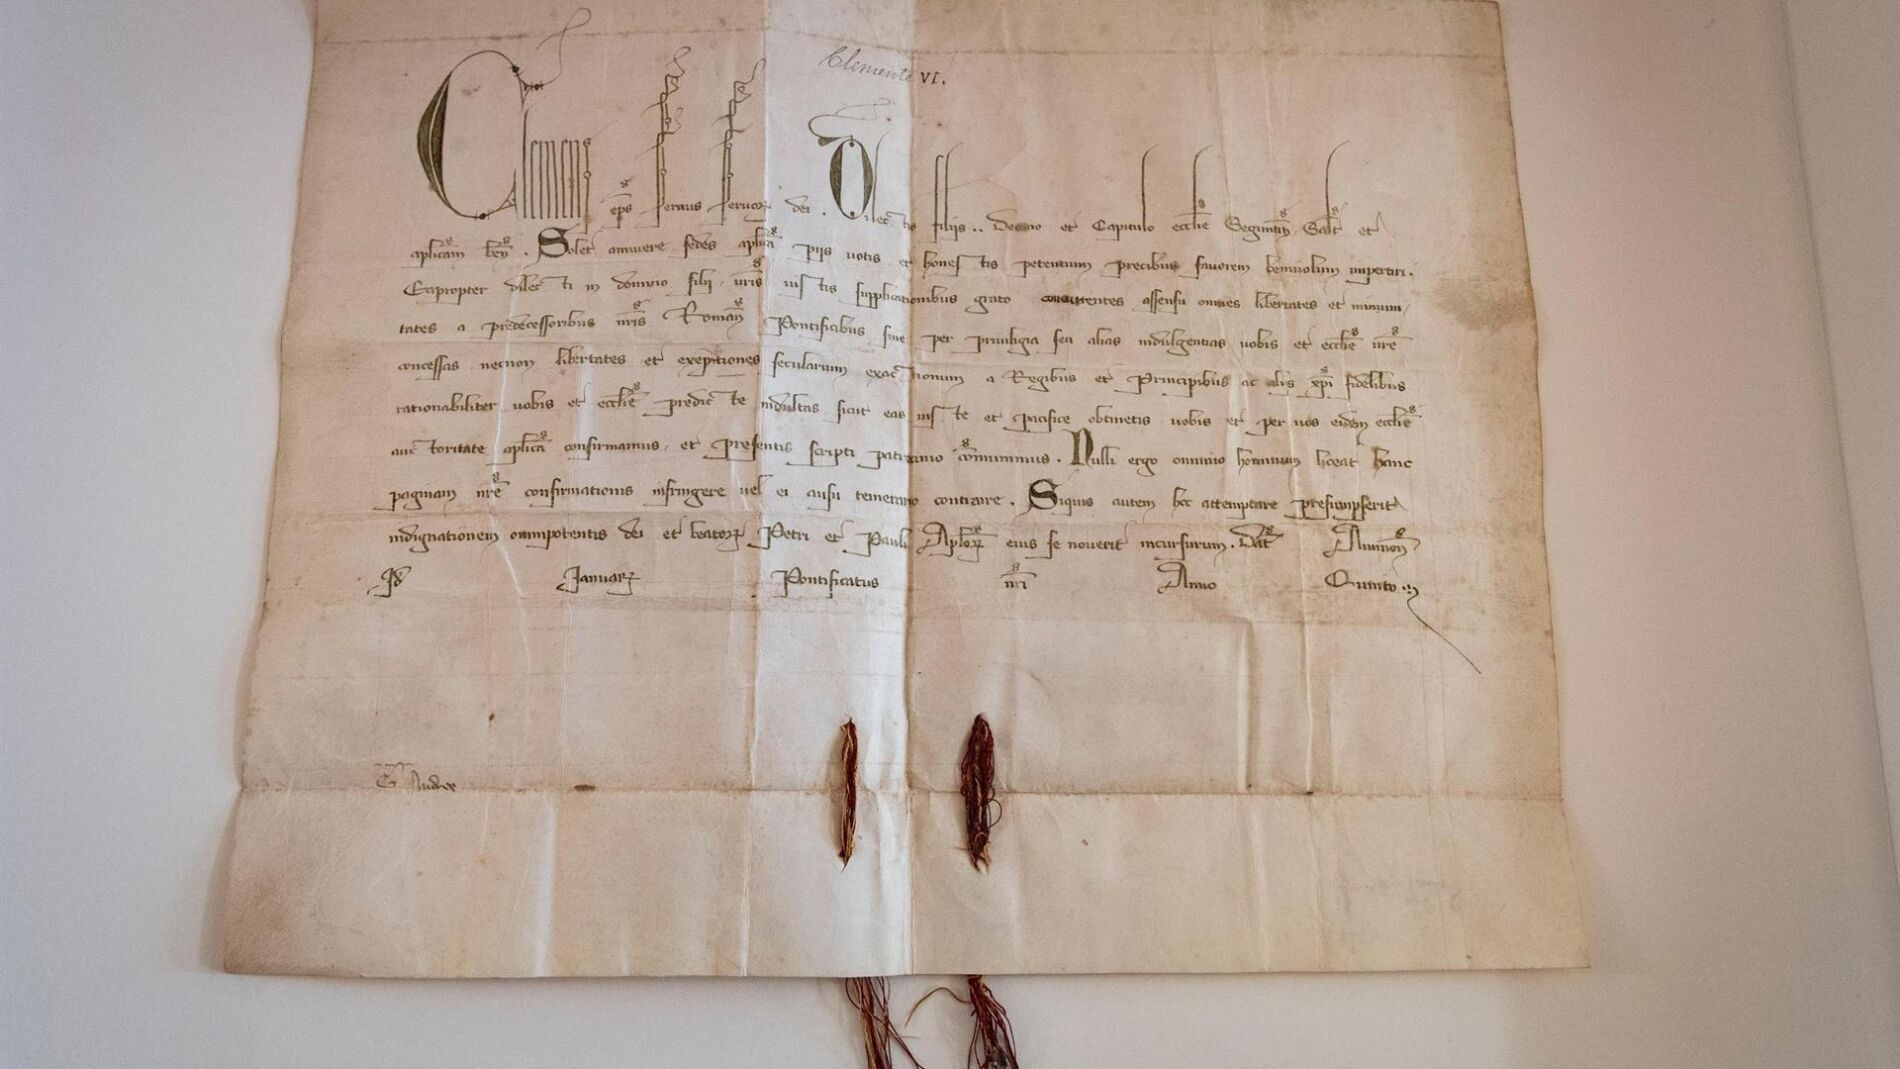 Clemente VI.
Clemens ep̄s seruus seruoꝝ dei . Dilectis filijs .. Decano et Capitulo eccl̄ie Seguntin̄ Salt̄ et
aplicam ben̄ . Solet annuere sedes aplica pijs uotis et honestis petentium precibus fauorem beniuolum impertiri .
Eapropter dilecti in domino filij . ur̄is iustis supplicationibus grato concurrentes assensu omnes libertates et inmuni
tates a predecessoribus nr̄is Roman̄ Pontificibus siue per priuilegia seu alias indulgentias uobis et eccl̄ie ur̄e
concessas necnon libertates et exemptiones secularium exactionum a Regibus et Principibus ac alijs xp̄i fidelibus
rationabiliter uobis et eccl̄ie predicte indultas sicut eas iuste et pacifice obtinetis uobis et per uos eidem eccl̄ie
auctoritate aplica confirmamus . et presentis scripti patrocinio cōmunimus . Nulli ergo omnino hominum liceat hanc
paginam nr̄e confirmationis infringere uel ei ausu temerario contraire . Siquis autem hoc attemptare presumpserit
indignationem omnipotentis dei et beatoꝝ Petri et Pauli Aploꝝ eius se nouerit incursurum . Dat̄ Auinion̄
Id̄ Januaꝝ Pontificatus nr̄i Anno Quinto